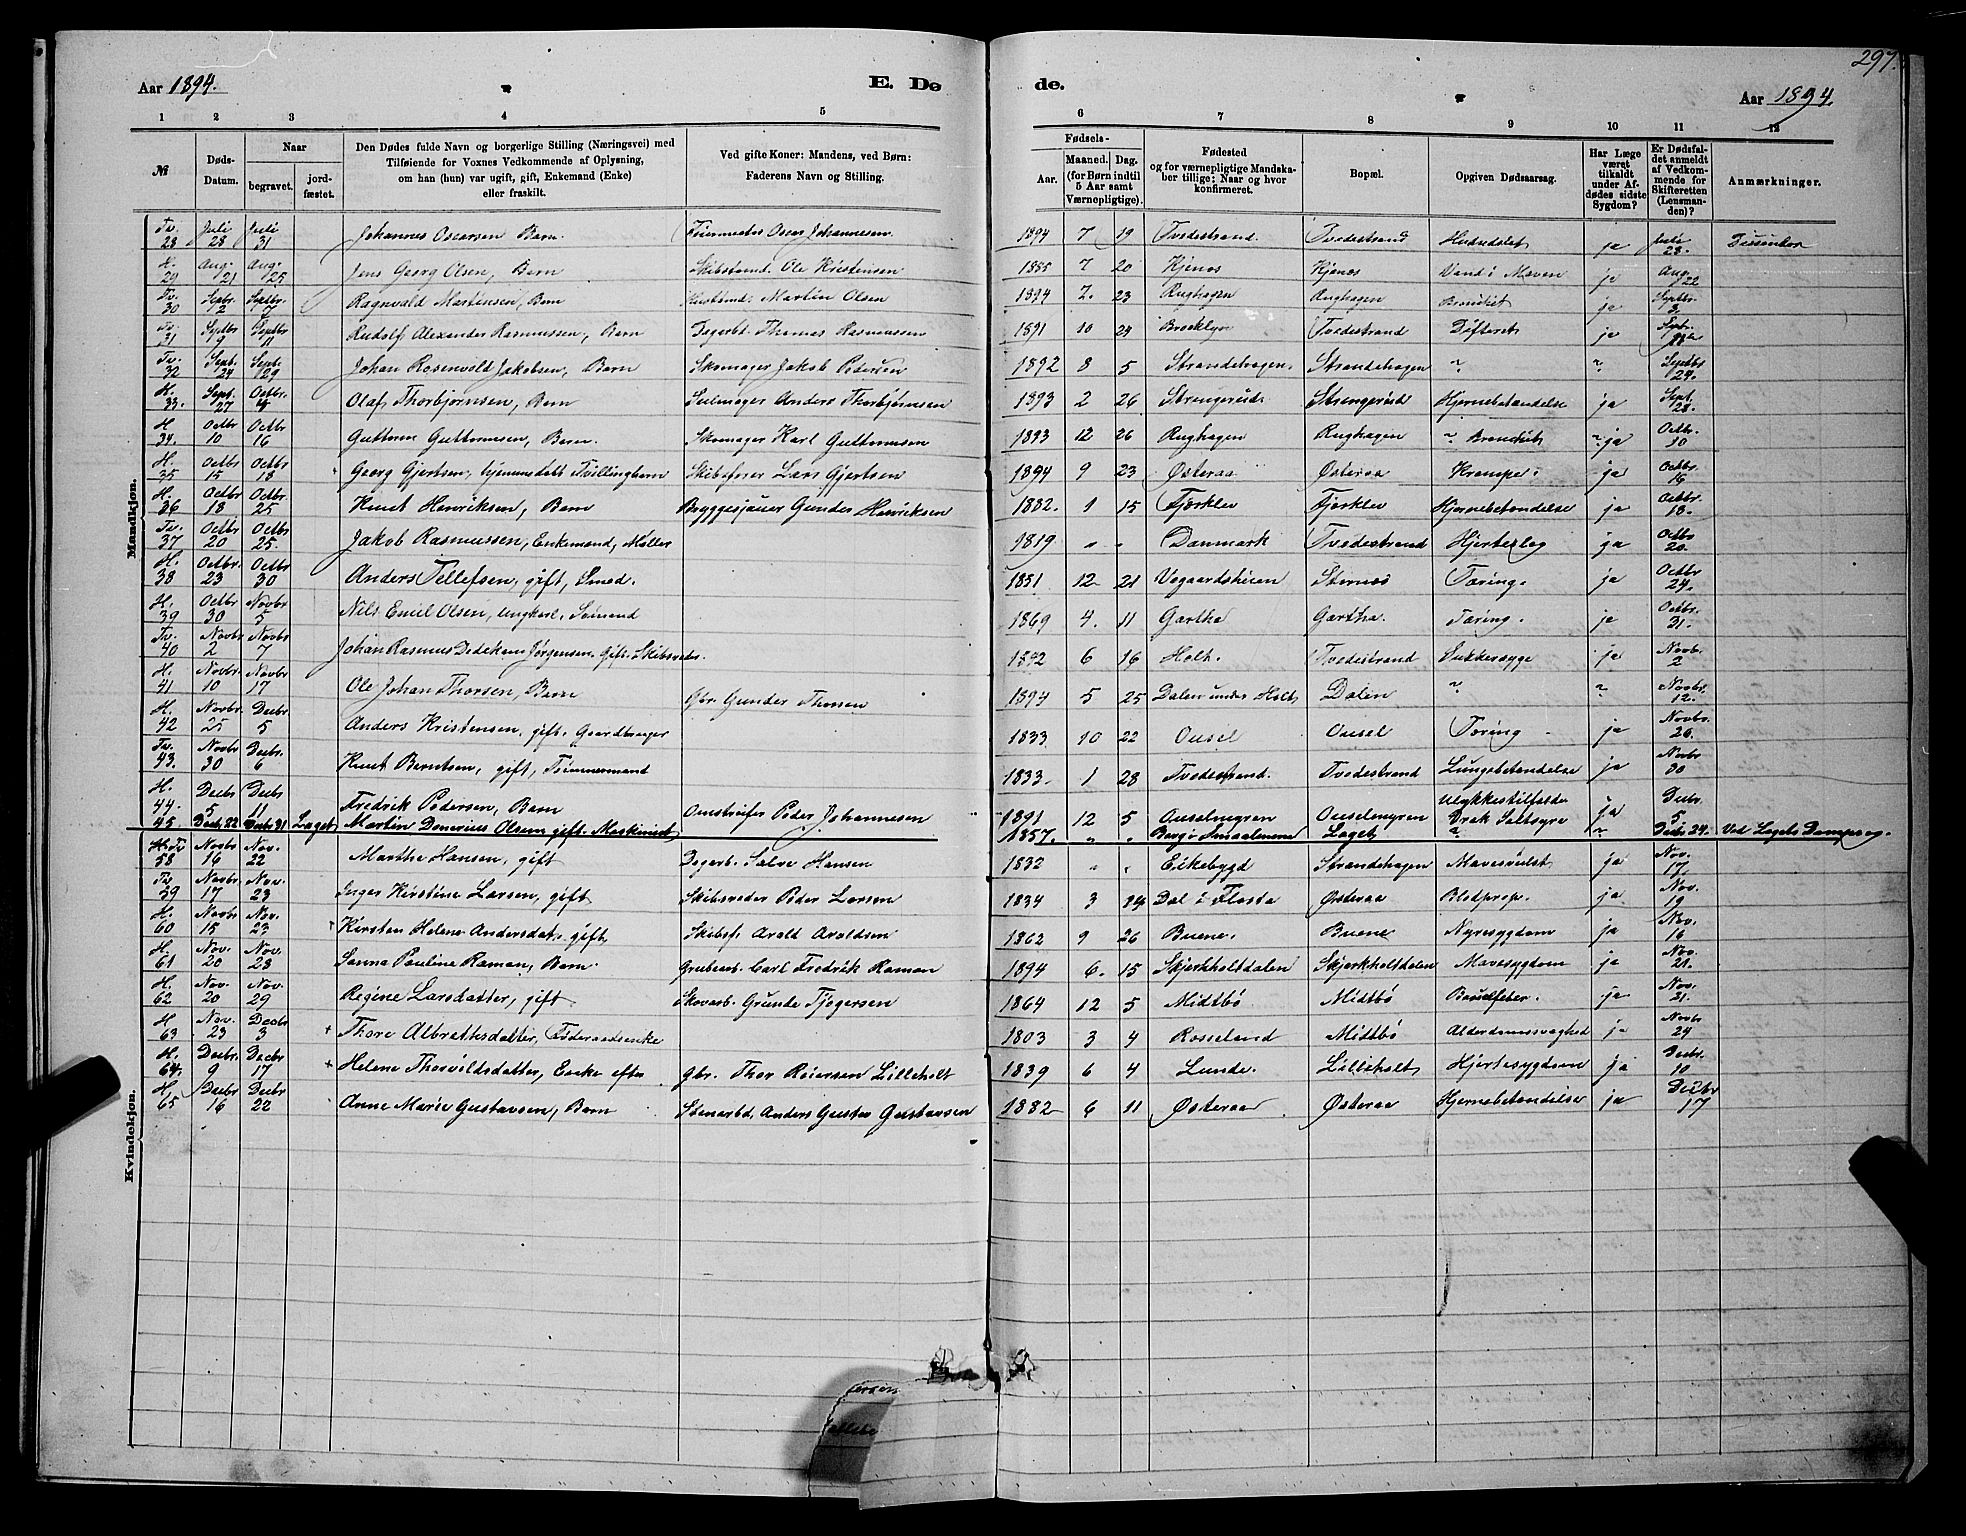 297.
Aar 1894. E. Dø de. Aar 1894.
1 2 3 4 5 6 7 8 9 10 11 12
№ Døds-Datum. Naar begravet. jord-fæstet. Den Dødes fulde Navn og borgerlige Stilling (Næringsvei) med Tilføiende for Voxnes Vedkommende af Oplysning, om han (hun) var ugift, gift, Enkemand (Enke) eller fraskilt. Ved gifte Koner: Mandens, ved Børn: Faderens Navn og Stilling. Fødsels- Aar. Maaned. Dag. (for Børn indtil 5 Aar samt Værnepligtige). Fødested og for værnepligtige Mandskaber tillige: Naar og hvor konfirmeret. Bopæl. Opgiven Dødsaarsag. Har Læge været tilkaldt under Afdødes sidste Sygdom? Er Dødsfaldet anmeldt af Vedkommende for Skifteretten (Lensmanden)? Anmærkninger.
Mandkjøn.
Tv. 28 Juli 28 Juli 31 Johannes Oscarsen Barn. Feiermester Oscar Johannesen 1894 7 19 Tvedestrand. Tvedestrand ja Juli 28.
H. 29 Aug. 21 Aug. 25 Jens Georg Olsen, Barn Skibstømd. Ole Kristensen 1885 7 20 Kjenes Kjenes Vand i Maven ja Aug. 22
Tv. 30 Septbr. 2 Septbr. 7 Ragnvald Martinsen, Barn Martin Olsen 1894 7. 23 Rughagen Rughagen ja Septbr. 3
Tv. 31 Septbr 9 Septbr 11 Rudolf Alexander Rasmussen, Barn Dagarbd. Thomas Rasmussen 1891 10 24 Brooklyn Tvedestrand Difterit ja
Tv. 32 Sept. 24 Sept. 29 Johan Rosenvold Jakobsen, Barn Skomager Jakob Pedersen 1892 8 5 Strandehagen. Strandehagen " " Septbr 24.
H. 33. Sept. 27 Octbr. 4 Olaf Thorbjørnsen, Barn Seilmager Anders Thorbjørnsen 1893 2 26 Strengereid Strengereid Hjernebetændelse ja Sept. 28.
H 34. Octbr 10 Octbr 16 Guttorm Guttormsen, Barn. Skomager Karl Guttormsen 1893 12 26 Rughagen Rughagen " ja Octbr. 10
H 35 Octbr 15 Octbr 18 Georg Gjertsen, hjemmedøbt Tvillingbarn Skibsfører Lars Gjertsen 1894 9 23 Østeraa Østeraa Krampe. ja Octbr. 16
H. 36 Octbr 18 Octbr 25 Knut Henriksen, Barn Bryggesjauer Gunder Henriksen 1882. 1 15 Fjerkler Fjerkler Hjernebetændelse ja Octbr. 18.
Tv. 37 Octbr 20 Octbr 25. Jakob Rasmussen, Enkemand, Møller 1819 " " Danmark Tvedestrand ja Octbr 20.
H. 38 Octbr. 23 Octbr 30 Anders Tellefsen, gift, Smed. 1851 12 21 Vegaardsheien Stenes Tæring. ja Octbr 24.
H. 39 Octbr 30 Novbr 5 Nils Emil Olsen, ungkarl, Sømand 1869 4. 11 Gartha Gartha. Tæring. ja Octbr. 31.
Tv. 40 Novbr 2 Novbr 7 Johan Rasmus Dedekam Jørgensen. Gift. Skibsreder. 1842 6 16 Holt. Tvedestrand Sukkersyge ja Novbr. 2
H. 41 Novbr. 10 Novbr 17 Ole Johan Thorsen, Barn Gbr. Gunder Thorsen 1894 5 25 Dalen under Holt Dalen " " Novbr. 12.
H. 42 Novbr. 25 Decbr. 5 Anders Kristensen, gift, Gaardbruger 1833 10 22 Ousel Ousel Tæring ja Novbr. 26.
Tv. 43. Novbr 30 Decbr. 6 Knut Berntsen, gift, Tømmermand 1833 1 28 Tvedestrand. Tvedestrand Lungebetændelse ja Novbr 30
H. 44. Decbr 5 Decbr 11 Fredrik Pedersen, Barn Peder Johannesen 1891 12 5 Ouselmyren Ouselmyren Ulykkestilfælde ja Decbr. 5
45. Decbr. 22 Decbr 31 Laget Martin Olsen gift. Maskinist 1857. " " Laget " Decbr. 24. Ved Lagets Dampsag.
Kvindekjøn.
H. Tv 58 Novbr 16 Nov. 22 Marthe Hansen, gift Dagarb. Salve Hansen 1832 " " Eikebygd Strandehagen Mavesvulst ja Nov. 17
Tv. 59 Novbr. 17 Nov. 23 Inger Kirstine Larsen, gift Skibsreder Peder Larsen 1834 3 14 Dal i Flosta Østeraa Blodprop. ja Nov. 19
H. 60 Novbr. 15 Nov. 23 Kirsten Helene Andersdat., gift Skibsf. Arold Aroldsen 1862 9 26 Buene. Buene Nyresygdom ja Nov. 16
H. 61 Nov. 20 Nov. 28 Sanna Pauline Raman, Barn. Grubearb. Carl Fredrik Raman 1894 6. 15 Skjerkholtdalen Skjerkholtdalen Mavesygdom ja Nov. 21.
H. 62 Nov. 20 Nov. 29 Regine Larsdatter, gift Skovarb. Grunde Tjøgersen 1864 12 5 Midtbø Midtbø Barselfeber. ja Nov. 21.
H 63 Nov. 23 Decbr 3 Thore Albrektsdatter, Føderaadsenke 1803 3 4 Rosseland Midtbø Alderdomssvaghed ja Novbr 24
H. 64. Decbr. 9 Decbr 17 Helene Thorvildsdatter, Enke efter gbr. Thor Reiersen Lilleholt 1839 6 4 Lunde. Lilleholt Hjertesygdom ja Decbr. 10
H. 65 Decbr. 16 Decbr 22 Anne Marie Gustavsen, Barn Stenarbd. Anders Gustav Gustavsen 1882 6 11 Østeraa Østeraa Hjernebetændelse ja Decbr 17